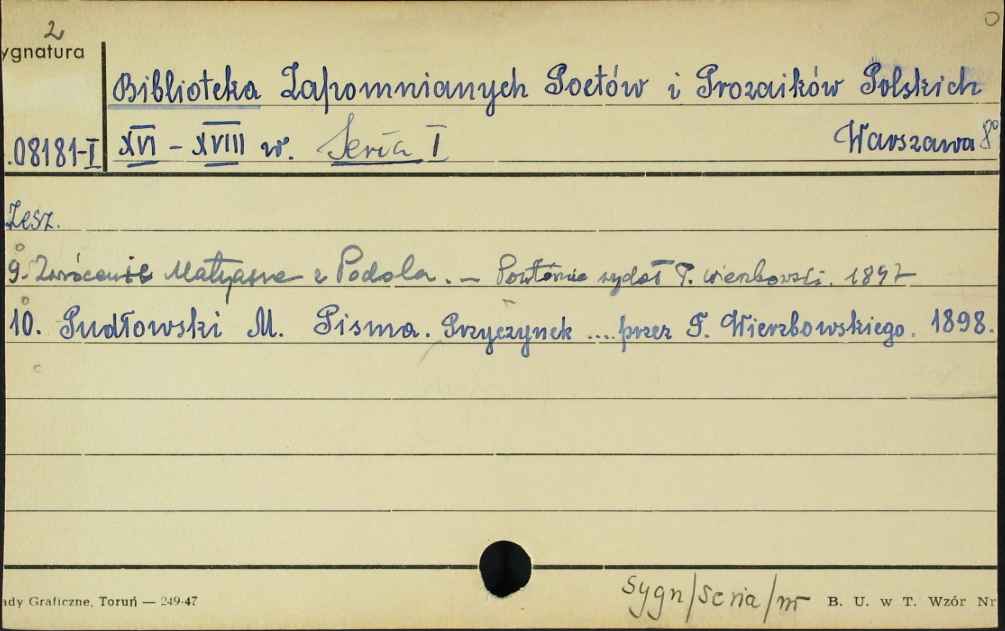 2
ygnatura
Biblioteka Zapomnianych Poetów i Prozaików Polskich
.08181-I XVI - XVIII w. Seria I Warszawa 8°
Zesz.
9. Zwrócenie Matyasza z Podola. — Powtórnie wydał T. Wierzbowski. 1897
10. Pudłowski M. Pisma. Przyczynek .... przez T. Wierzbowskiego. 1898.
sygn/seria/nr
ady Graficzne, Toruń — 249-47 B. U. w T. Wzór Nr